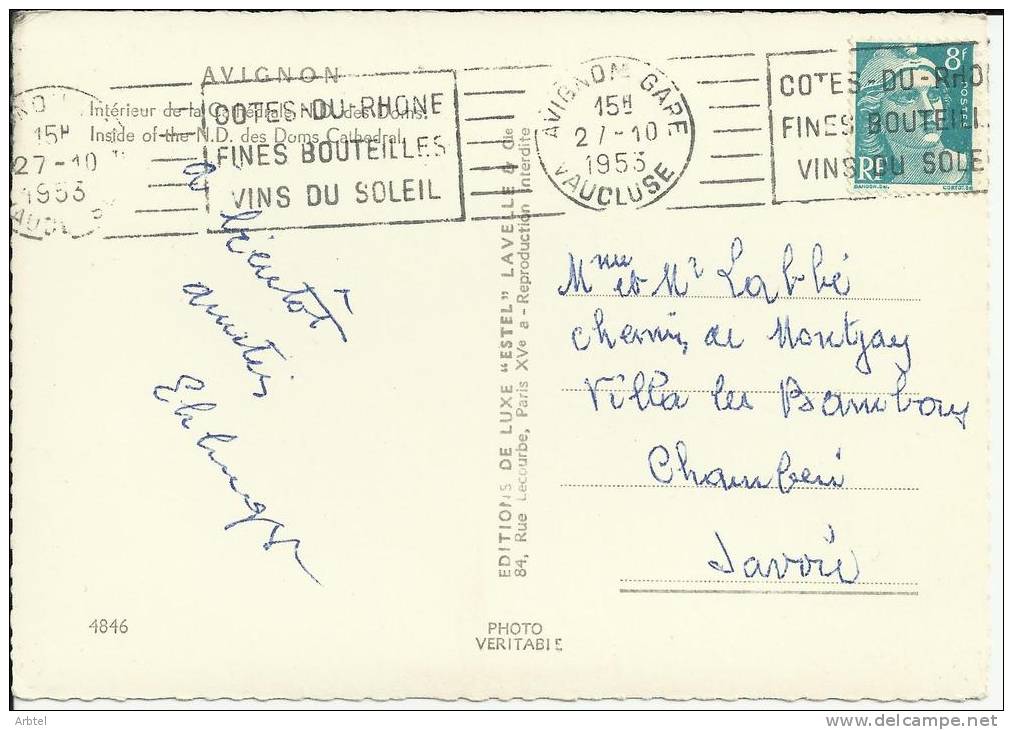 AVIGNON
Intérieur de la Cathédrale N.D. des Doms
Inside of the N.D. des Doms Cathedral
15H
27-10
1953
COTES-DU-RHONE
FINES BOUTEILLES
VINS DU SOLEIL
AVIGNON GARE
15H
27-10
1953
VAUCLUSE
COTES-DU-RHON
FINES BOUTEILL
VINS DU SOLEI
8F
POSTES
RF
à
bientôt
amitiés
EDITIONS DE LUXE "ESTEL" LAVELLE & Cie
84, Rue Lecourbe, Paris XVe a - Reproduction Interdite
Mme et Mr Labbé
chemin de Montjay
Villa les Bambous
Chambéri
Savoie
4846
PHOTO
VERITABLE
Arbtel
www.delcampe.net